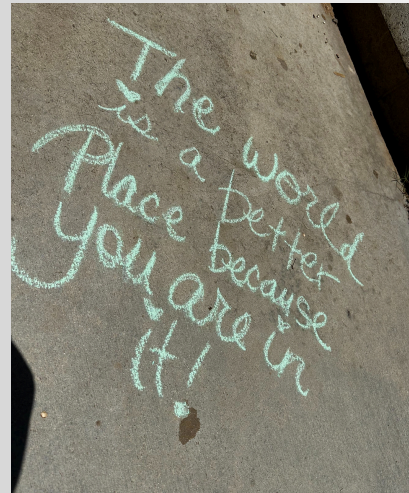 The world
is a better
Place because
you are in
it!